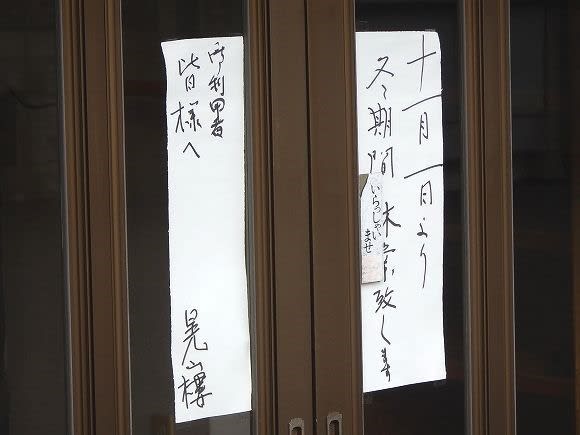 十一月一日より
冬期間休業致します
いらっしゃい
ませ
御利用者
皆様へ
晃山樓